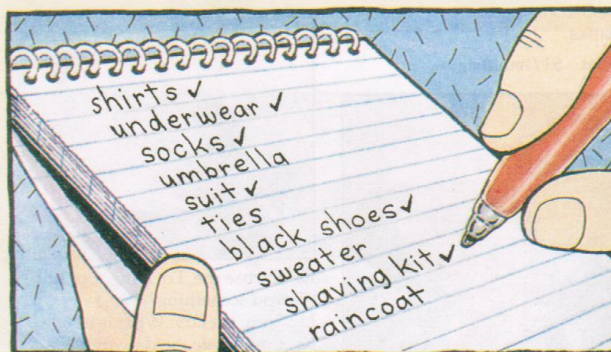 shirts ✓
underwear ✓
socks ✓
umbrella
suit ✓
ties
black shoes ✓
sweater
shaving kit ✓
raincoat